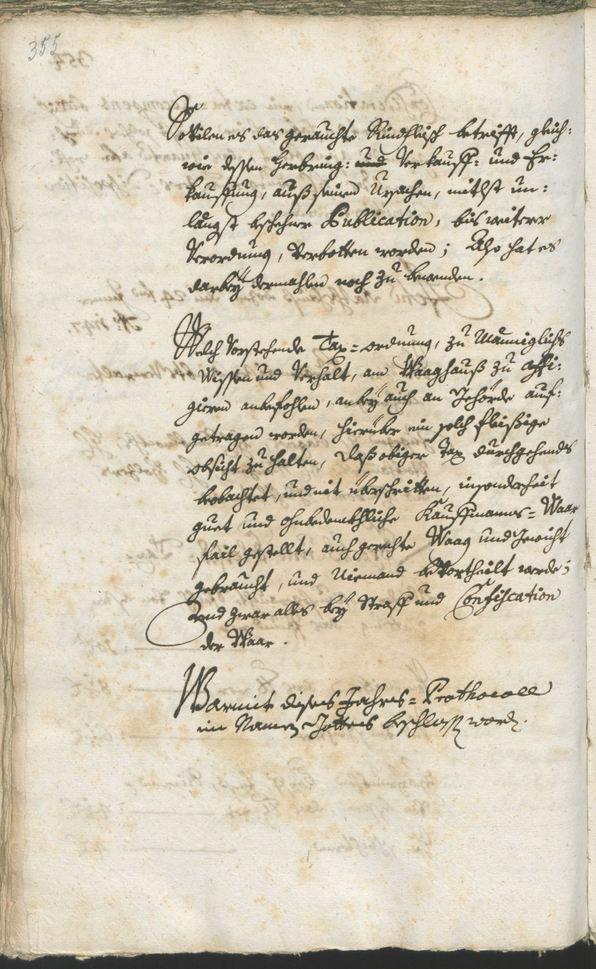 355
Sovilen es das gerauchte Rindfleisch betrifft, gleich:
wie dessen Herbring: und Verkauff: und Er:
kauffung, auß seinen Ursachen, mithlst un:
längst beschehner Publication, bis weiterer
Verordnung, Verbotten worden; Also hat es
darbey dermahlen noch zu bewenden.
Welch Vorstehende Tax=ordnung, zu Männiglichs
Wissen und Verhalt, am Waaghauß zu affi:
gieren anbefohlen, anbey auch an Gehörde auf:
getragen worden, hierüber ein solch fleißige
obsicht zu halten, daß obiger Tax durchgehends
beobachtet, und nit überschritten, insonderheit
guet und ohnbedenkhliche Kauffmanns=Waar
fail gestellt, auch gerechte Waag und Gewicht
gebraucht, und Niemand bevortheilt werde;
Und zwar alles bey Straff und Confiscation
der Waar.
Warmit dises Jahres=Prothocoll
im Namen Gottes beschlossen worden.